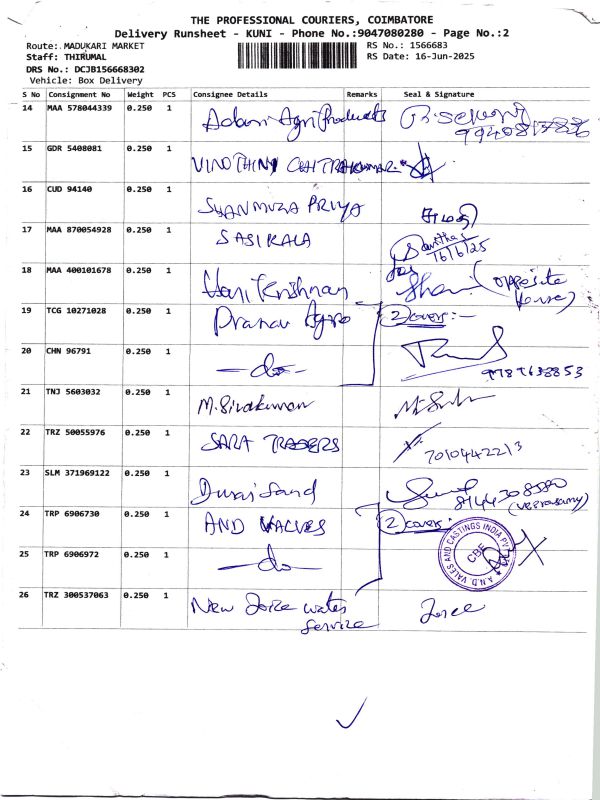 THE PROFESSIONAL COURIERS, COIMBATORE
Delivery Runsheet - KUNI - Phone No.:9047080280 - Page No.:2
Route: MADUKARI MARKET
RS No.: 1566683
Staff: THIRUMAL
RS Date: 16-Jun-2025
DRS No.: DCJB156668302
Vehicle: Box Delivery
S No Consignment No Weight PCS Consignee Details Remarks Seal & Signature
14 MAA 578044339 0.250 1 Adani Agri Products
15 GDR 5408081 0.250 1 VINOTHINI CHITRAKUMAR
16 CUD 94140 0.250 1 SHANMUGA PRIYA
17 MAA 870054928 0.250 1 SASIKALA
16/6/25
18 MAA 400101678 0.250 1 Hari Krishnan (opposite
House)
19 TCG 10271028 0.250 1 Pranav Agro 2 covers:-
20 CHN 96791 0.250 1 —do—
21 TNJ 5603032 0.250 1 M. Sivakumar
22 TRZ 50055976 0.250 1 SARA TRADERS
7010442213
23 SLM 371969122 0.250 1 Durai Sand
8144308580
(veerasamy)
24 TRP 6906730 0.250 1 AND VALVES 2 covers:
A.N.D. VALES AND CASTINGS INDIA PV
CBE
25 TRP 6906972 0.250 1 —do—
26 TRZ 300537063 0.250 1 New Joice water
Service
Joice